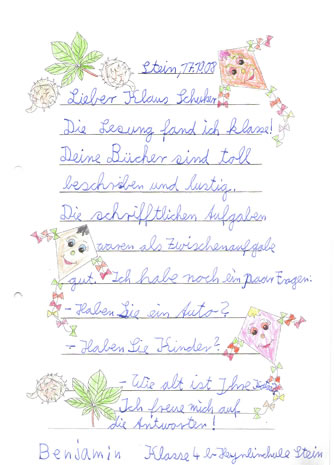 Stein, 17.10.08
Lieber Klaus Schuker,
Die Lesung fand ich klasse!
Deine Bücher sind toll
beschriben und lustig.
Die schrifftlichen Aufgaben
waren als Zwischenaufgabe
gut. Ich habe noch ein paar Fragen:
- Haben Sie ein Auto?
- Haben Sie Kinder?
- Wie alt ist Ihre
Ich freue mich auf
die Antworten!
Benjamin Klasse 4 b Stein